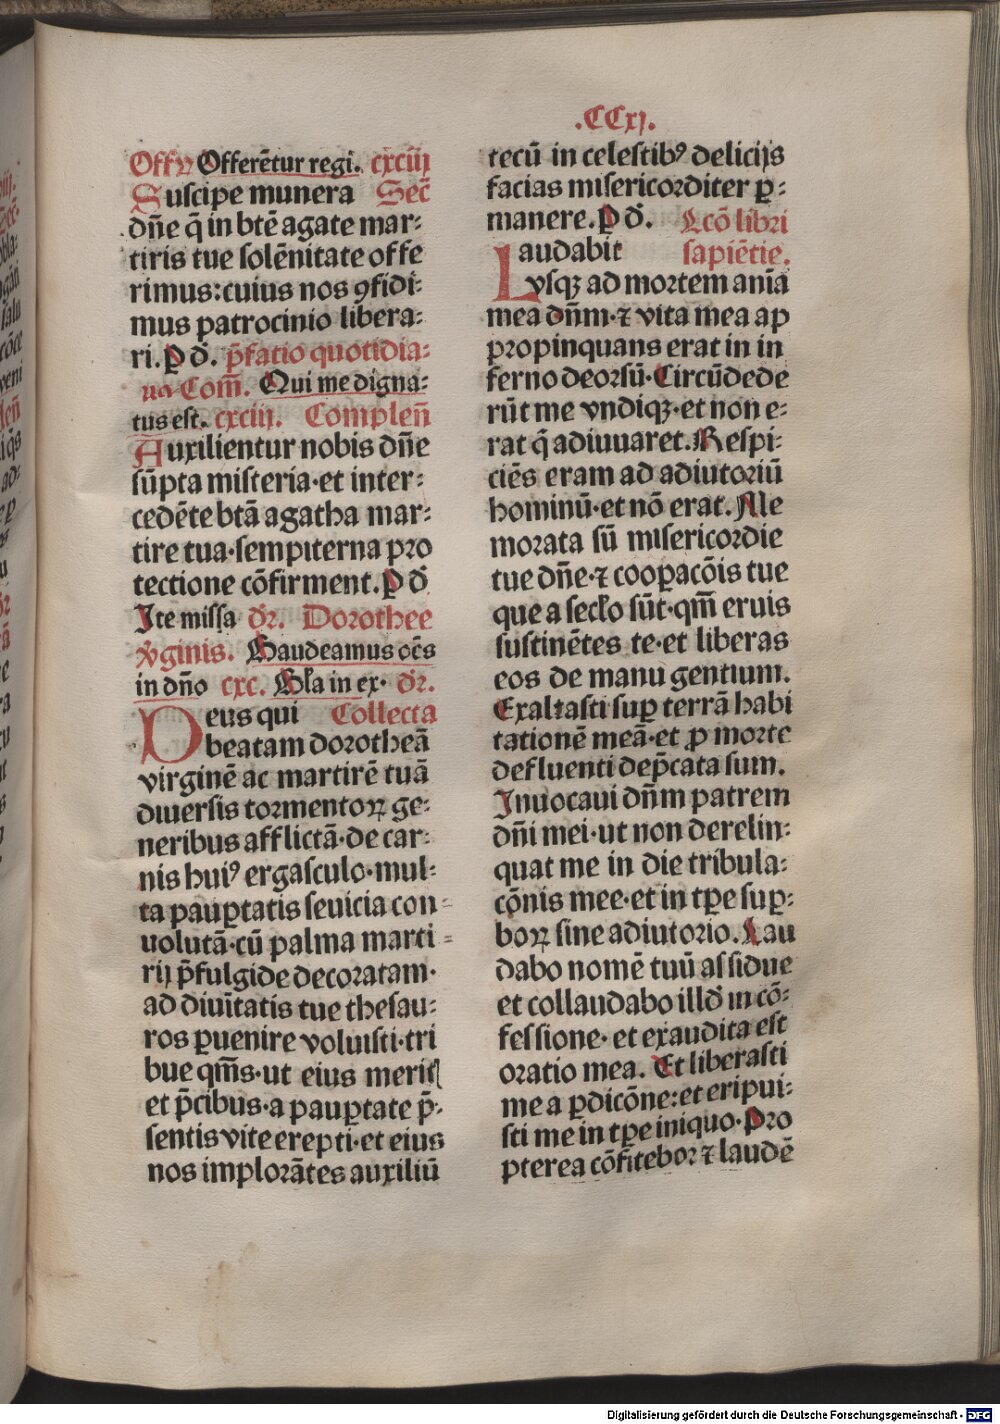 .CCxj.
Offr Offerētur regi. cxciij
Suscipe munera Sec̄
dn̄e q̄ in btē agate mar:
tiris tue solēnitate offe
rimus: cuius nos ꝯfidi:
mus patrocinio libera:
ri. P d̄. p̄fatio quotidia:
na Com̄. Qui me digna:
tus est. cxciij. Complen̄
Auxilientur nobis dn̄e
sūpta misteria·et inter:
cedēte btā agatha mar:
tire tua·sempiterna pro
tectione cōfirment. P d̄
Ite missa dr̄. Dorothee
v̓ginis. Gaudeamus oēs
in dn̄o cxc. Gl̄a in ex· dr̄.
Deus qui Collecta
beatam dorotheā
virginē ac martirē tuā
diuersis tormentoꝝ ge:
neribus afflictā·de car:
nis huiꝰ ergasculo·mul:
ta pauꝑtatis seuicia con:
uolutā·cū palma marti:
rij p̄fulgide decoratam·
ad diuītatis tue thesau:
ros ꝑuenire voluisti·tri
bue qm̄s·ut eius merit
et p̄cibus·a pauꝑtate p̄:
sentis vite erepti·et eius
nos implorātes auxiliū
tecū in celestibꝰ delicijs
facias misericorditer ꝑ:
manere. P d̄. Lcō libri
Laudabit sapiētie.
vsqꝫ ad mortem anīa
mea dn̄m·⁊ vita mea ap
propinquans erat in in
ferno deorsū·Circūdede
rūt me vndiqꝫ·et non e:
rat q̄ adiuuaret. Respi:
ciēs eram ad adiutoriū
hominū·et nō erat. Me
morata sū misericordie
tue dn̄e·⁊ cooꝑacōis tue
que a seclo sūt·qm̄ eruis
sustinētes te·et liberas
eos de manu gentium.
Exaltasti suꝑ terrā habi
tationē meā·et ꝓ morte
defluenti dep̄cata sum.
Inuocaui dn̄m patrem
dn̄i mei·ut non derelin:
quat me in die tribula:
cōnis mee·et in tꝑe suꝑ:
boꝝ sine adiutorio. Lau
dabo nomē tuū assidue
et collaudabo illd̄ in cō:
fessione· et exaudita est
oratio mea. Et liberasti
me a ꝑdicōne: et eripui:
sti me in tꝑe iniquo·Pro
pterea cōfitebor ⁊ laudē
Digitalisierung gefördert durch die Deutsche Forschungsgemeinschaft - DFG